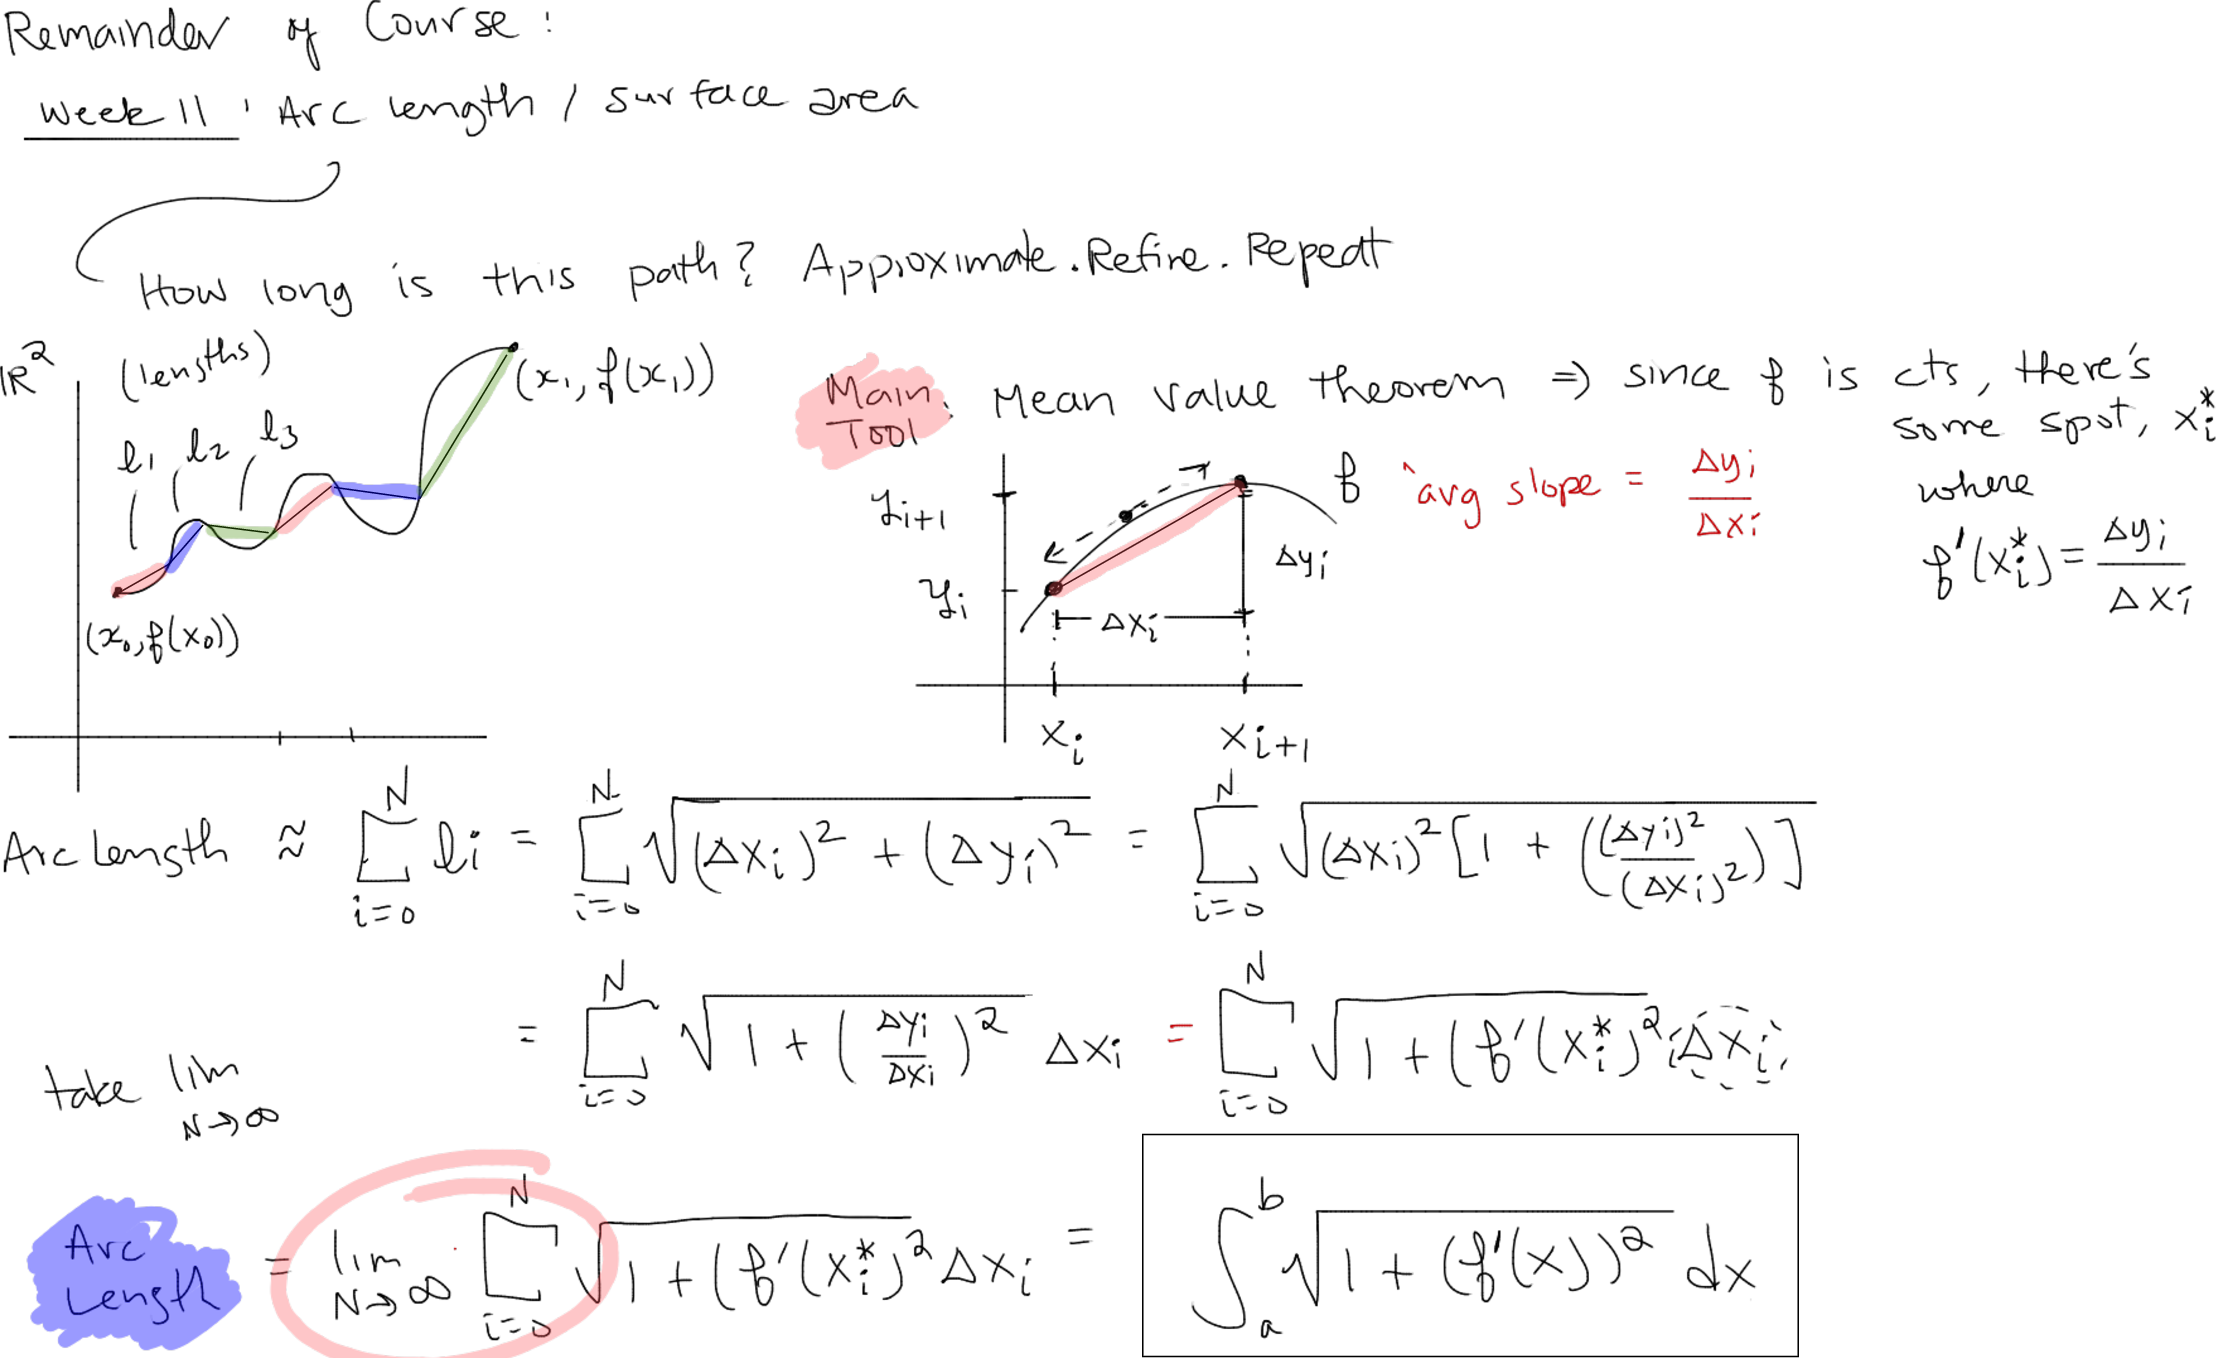 Remainder of Course:
Week 11: Arc length / surface area
How long is this path? Approximate. Refine. Repeat
ℝ²
(lengths)
l₁ l₂ l₃
(x₁, f(x₁))
(x₀, f(x₀))
Main Tool: Mean value theorem ⇒ since f is cts, there's
some spot, xᵢ*
where
f'(xᵢ*) = Δyᵢ/Δxᵢ
f
avg slope = Δyᵢ/Δxᵢ
yᵢ₊₁
yᵢ
Δyᵢ
Δxᵢ
xᵢ xᵢ₊₁
Arc Length ≈ Σ_{i=0}^{N} lᵢ = Σ_{i=0}^{N} √((Δxᵢ)² + (Δyᵢ)²) = Σ_{i=0}^{N} √((Δxᵢ)² [1 + ((Δyᵢ)²/(Δxᵢ)²)])
= Σ_{i=0}^{N} √(1 + (Δyᵢ/Δxᵢ)²) Δxᵢ = Σ_{i=0}^{N} √(1 + (f'(xᵢ*)²) Δxᵢ
take lim N→∞
Arc Length = lim N→∞ Σ_{i=0}^{N} √(1 + (f'(xᵢ*)²) Δxᵢ = ∫ₐᵇ √(1 + (f'(x))²) dx